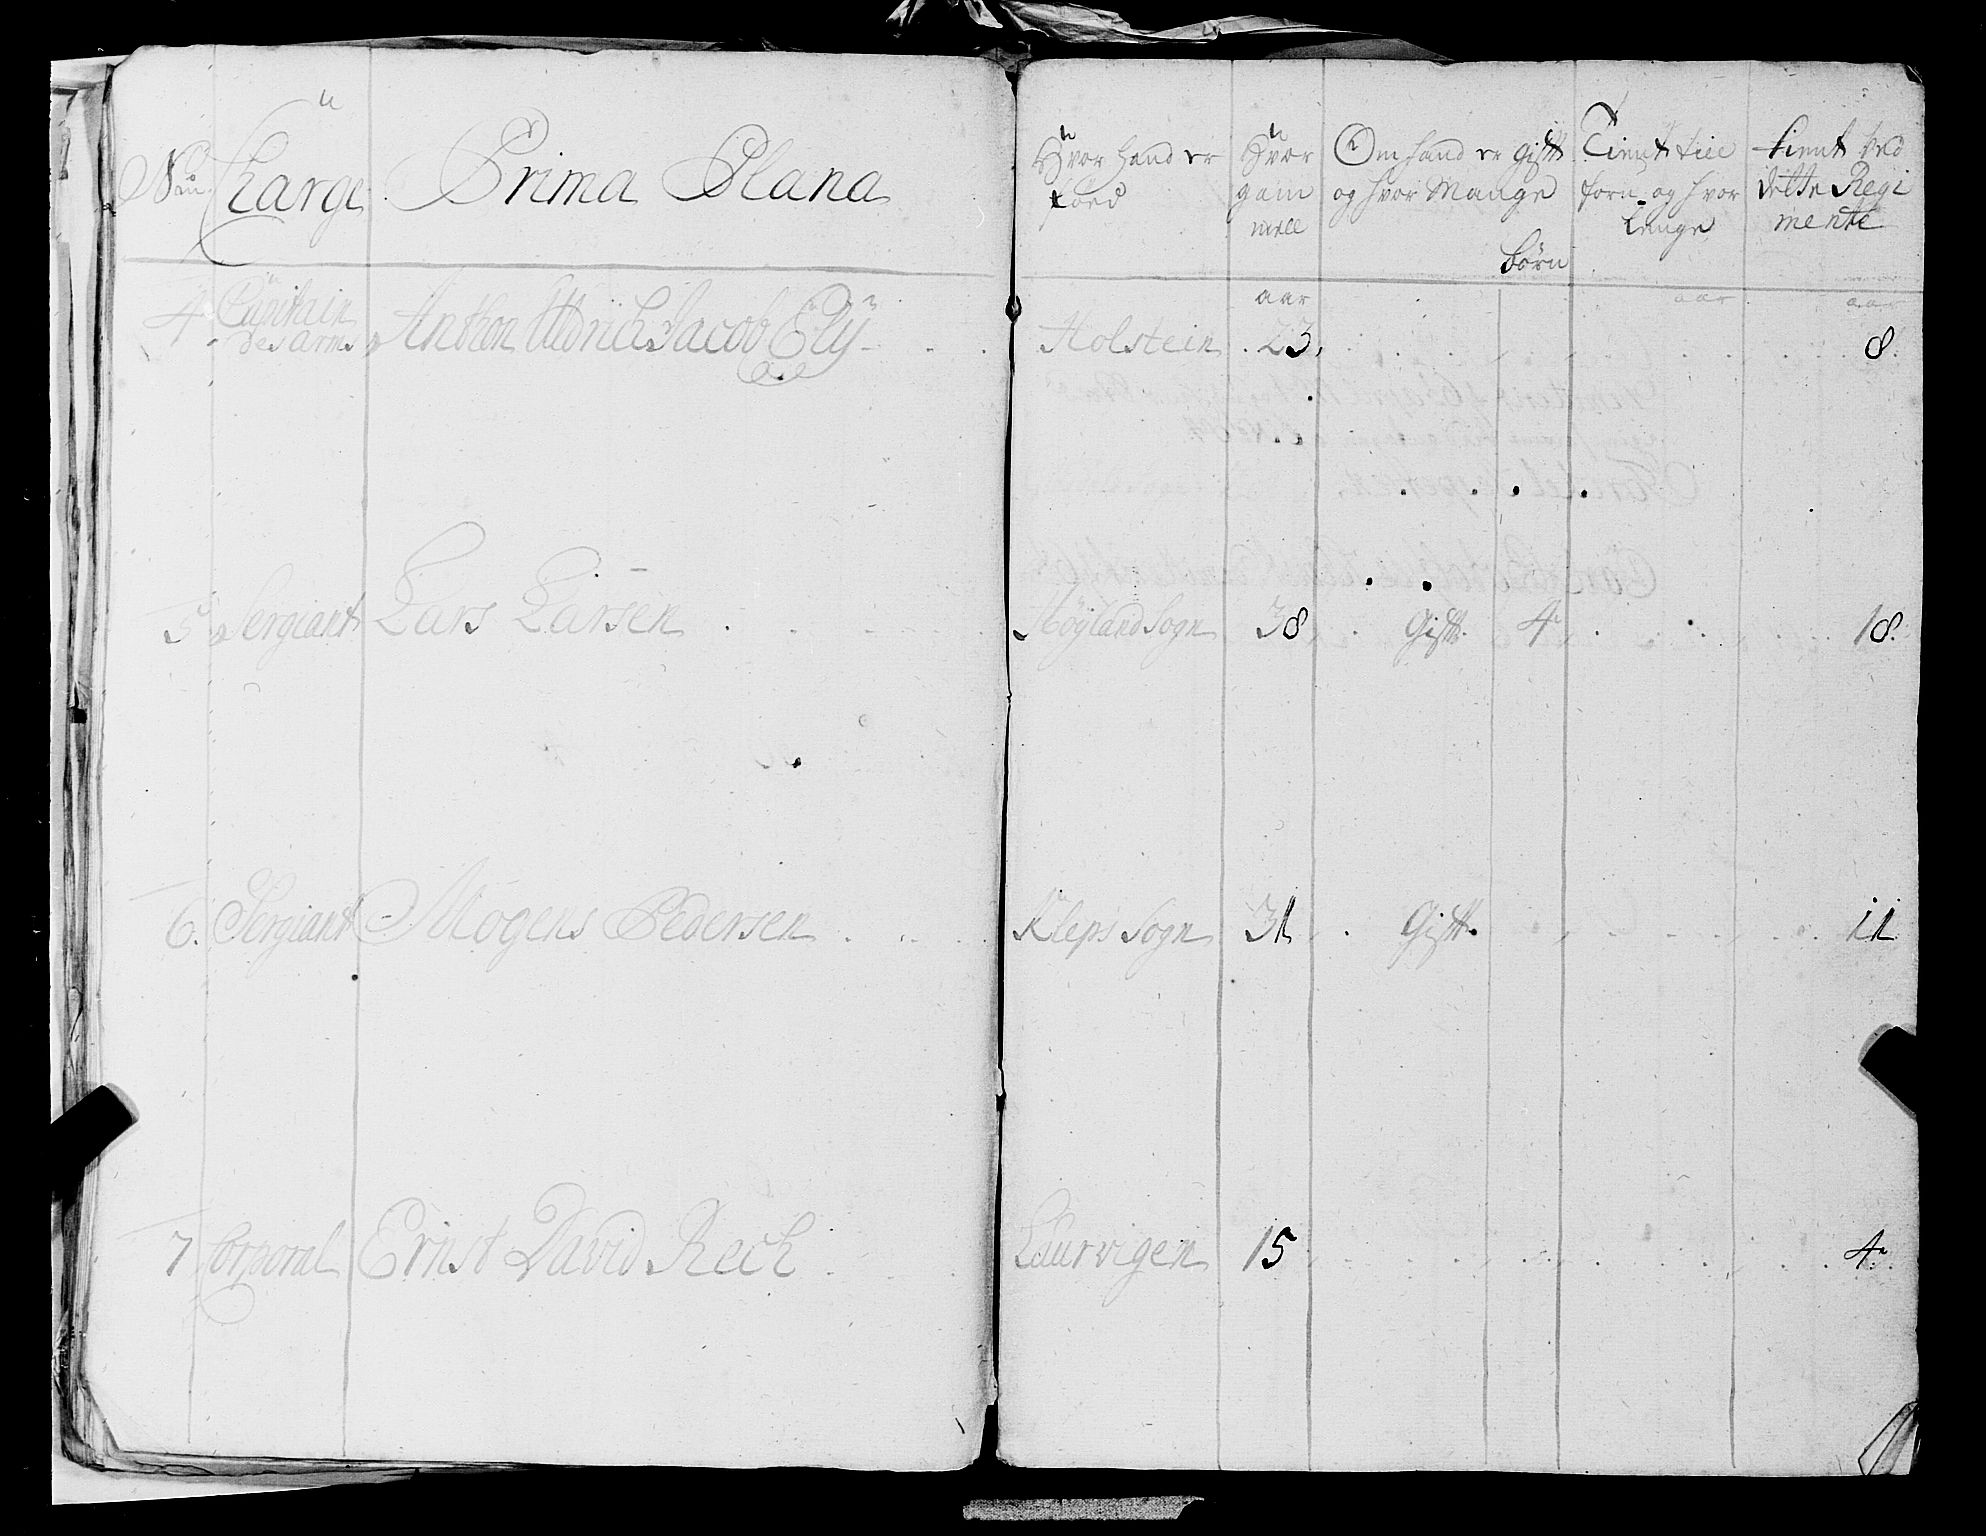 Nũ. Charge Prima Plana
Hvor hand er Hvor Om hand er gift Tient til Tient ved
foed gam og hvor Mange forn og hvor dette Regi
mell lenge mente
børn
aar aar aar
4 Capitain
des arms Anthon Uldrich Jacob Ely Holstein 23 8.
5 Sergiant Lars Larsen Høyland Sogn 38 Gift 4 18.
6. Sergiant Mogens Pedersen Kleps Sogn 31 Gift 11
7 Corporal Ernst David Rech Laurvigen 15 4